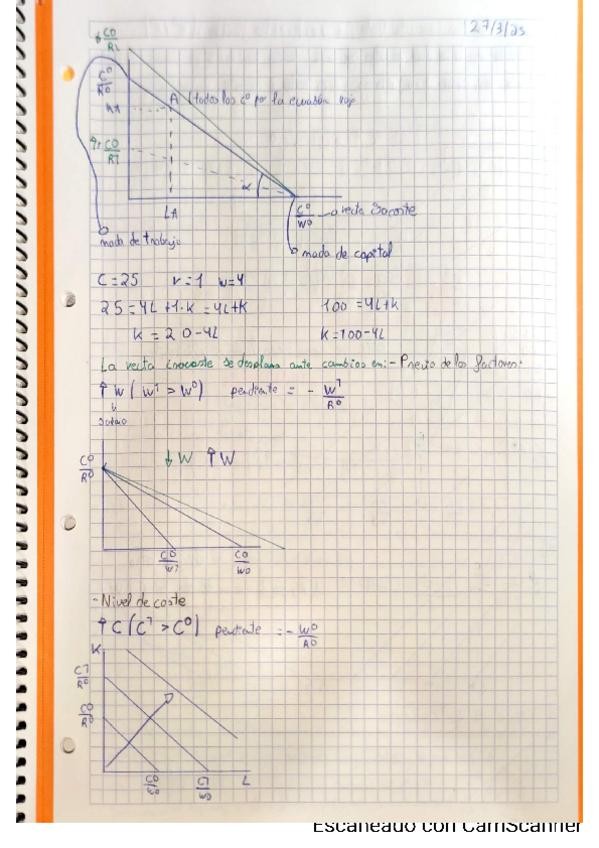 27/3/25
↓ C⁰/R¹
C⁰/R⁰
KA
A (todos los c⁰ por la ecuasón
↑r C⁰/R1
α
LA
C⁰/W⁰ → recta isocoste
nada de trabajo
nada de capital
C=25 r=1 w=4
25=4L+1·K=4L+K 100=4L+K
K=20-4L K=100-4L
La recta isocoste se desplaza ante cambios en: - Precio de los factores:
↑ W (W¹ > W⁰) pendiente = - W¹/R⁰
C⁰/R⁰
↓ W ↑ W
C⁰/W¹ C⁰/W⁰
- Nivel de coste
↑ C (C¹ > C⁰) pendiente = - W⁰/R⁰
K
C¹/R⁰
C⁰/R⁰
C⁰/W⁰ L
Escaneado con CamScanner